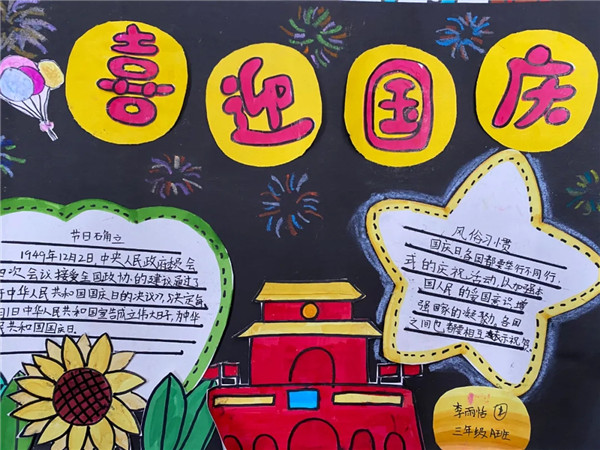 喜迎国庆
节日确立
1949年12月2日，中央人民政府委员会
四次会议接受全国政协的建议通过了
中华人民共和国国庆日的决议》，决定每
月1日中华人民共和国宣告成立伟大日子，为中华
民共和国国庆日。
风俗习惯
国庆日各国都要举行不同形
式的庆祝活动，以加强本
国人民的爱国意识，增
强国家的凝聚力。各国
之间也都要相互表示祝贺
李雨恬
三年级A班